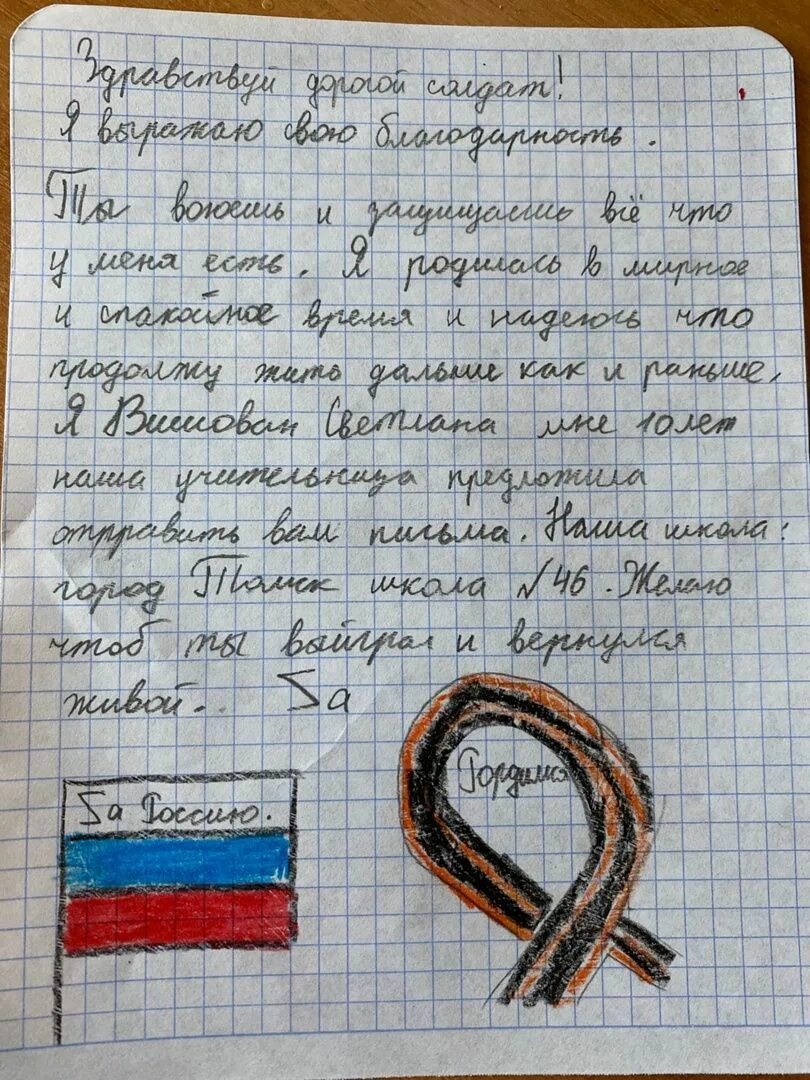 Здравствуй дорогой солдат!
Я выражаю свою благодарность.
Ты воюешь и защищаешь всё что
у меня есть. Я родилась в мирное
и спокойное время и надеюсь что
продолжу жить дальше как и раньше.
Я Светлана мне 10 лет
наша учительница предложила
отправить вам письма. Наша школа:
город Томск школа №46. Желаю
чтоб ты выйграл и вернулся
живой.. Zа
Zа Россию.
Гордимся